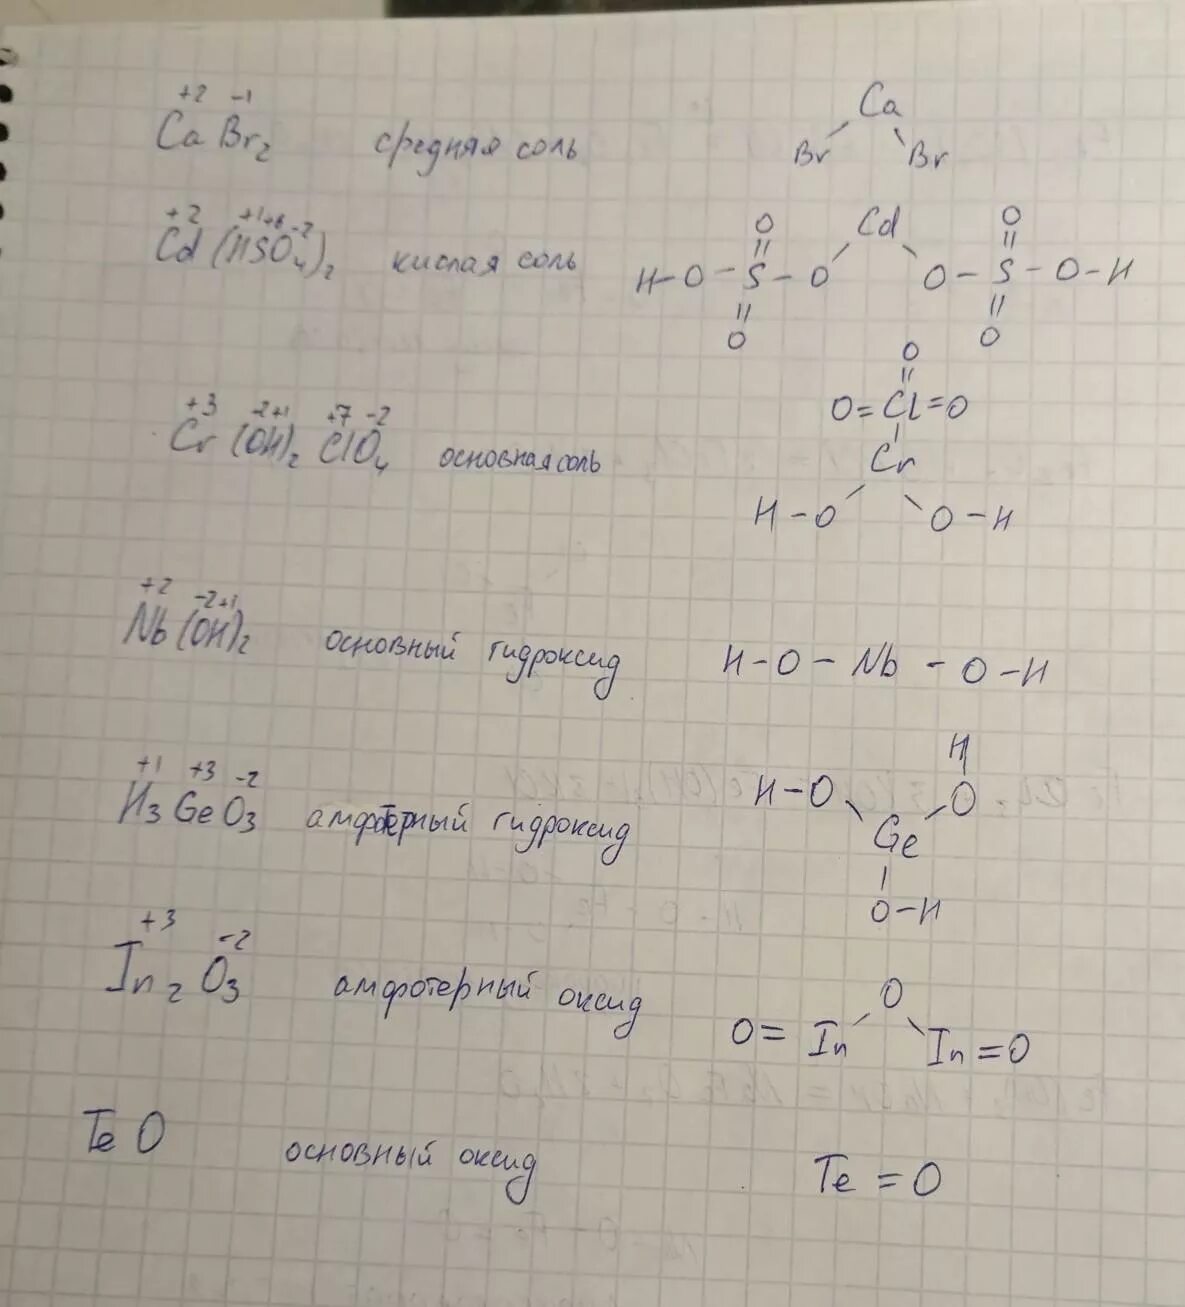 +2 -1
CaBr2 средняя соль
Ca
Br Br
+2 +1+6-2
Cd(HSO4)2 кислая соль
O Cd O
H-O-S-O O-S-O-H
O O
+3 -2+1 +7 -2
Cr(OH)2ClO4 основная соль
O
O=Cl=O
Cr
H-O O-H
+2 -2+1
Nb(OH)2 основный гидроксид H-O-Nb-O-H
+1 +3 -2
H3GeO3 амфотерный гидроксид
H
H-O O
Ge
O-H
+3 -2
In2O3 амфотерный оксид
O
O=In In=O
TeO основный оксид Te=O